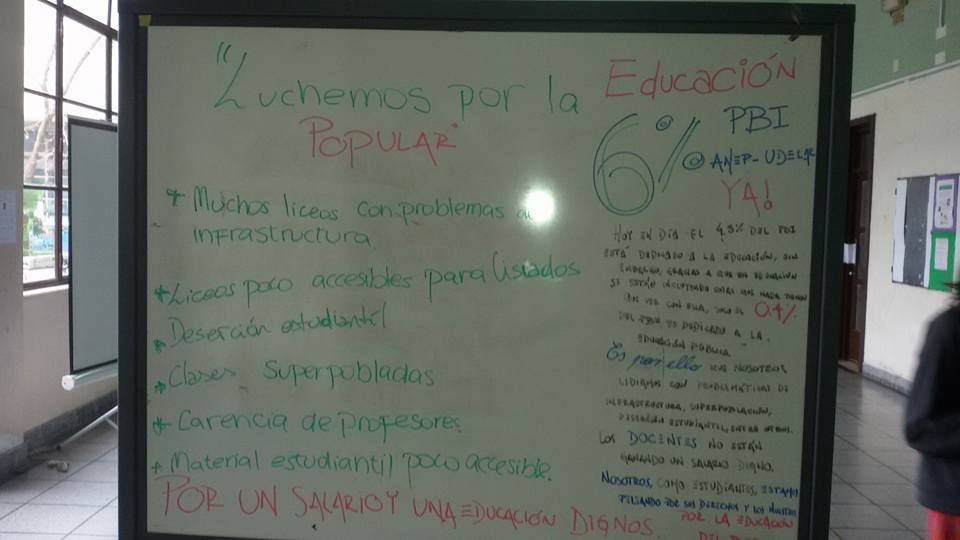 "Luchemos por la
Educación
POPULAR"
* Muchos liceos con problemas de
infrastructura.
* Liceos poco accesibles para lisiados
* Deserción estudiantil
* Clases Superpobladas
* Carencia de profesores.
* Material estudiantil poco accesible.
POR UN SALARIO Y UNA EDUCACIÓN DIGNOS.
6% PBI
@ ANEP-UDELAR
YA!
HOY EN DÍA EL 4,5% DEL PBI
ESTÁ DEDICADO A LA EDUCACIÓN, SIN
EMBARGO, GRACIAS A QUE EN EDUCACIÓN
SE ESTÁN INCLUYENDO COSAS QUE NADA TIENEN
QUE VER CON ELLA, SOLO EL 0.4%
DEL PBI ES DEDICADO A LA
EDUCACIÓN PÚBLICA.
Es por ello QUE NOSOTROS
LIDIAMOS CON PROBLEMÁTICAS DE
INFRAESTRUCTURA, SUPERPOBLACIÓN,
DESERCIÓN ESTUDIANTIL, ENTRE OTROS.
LOS DOCENTES NO ESTÁN
GANANDO UN SALARIO DIGNO.
NOSOTROS, COMO ESTUDIANTES, ESTAMOS
PELIANDO POR SUS DERECHOS Y LOS NUESTROS
POR LA EDUCACIÓN
DEL